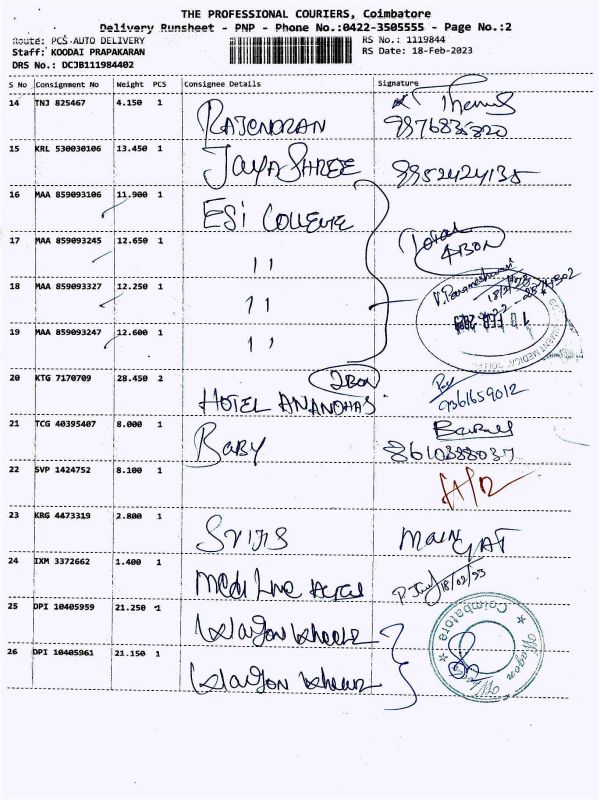 THE PROFESSIONAL COURIERS, Coimbatore
Delivery Runsheet - PNP - Phone No.:0422-3505555 - Page No.:2
Route: PCS-AUTO DELIVERY
RS No.: 1119844
Staff: KOODAI PRAPAKARAN
RS Date: 18-Feb-2023
DRS No.: DCJB111984402
S No Consignment No Weight PCS Consignee Details Signature
14 TNJ 825467 4.150 1
RAJENDRAN
15 KRL 530030106 13.450 1
JAYASHREE 9952424135
16 MAA 859093106 11.900 1
ESI COLLEGE
17 MAA 859093245 12.650 1
11
Total
4BON
18 MAA 859093327 12.250 1
11
V. Parameshwari
19 MAA 859093247 12.600 1
11
20 KTG 7170709 28.450 2
2BON
HOTEL ANANDHAS
9361659012
21 TCG 40395407 8.000 1
BABY
8610388037
22 SVP 1424752 8.100 1
23 KRG 4473319 2.800 1
MAIN GAT
24 IXM 3372662 1.400 1
Medi Line
25 DPI 10405959 21.250 1
26 DPI 10405961 21.150 1
Coimbatore